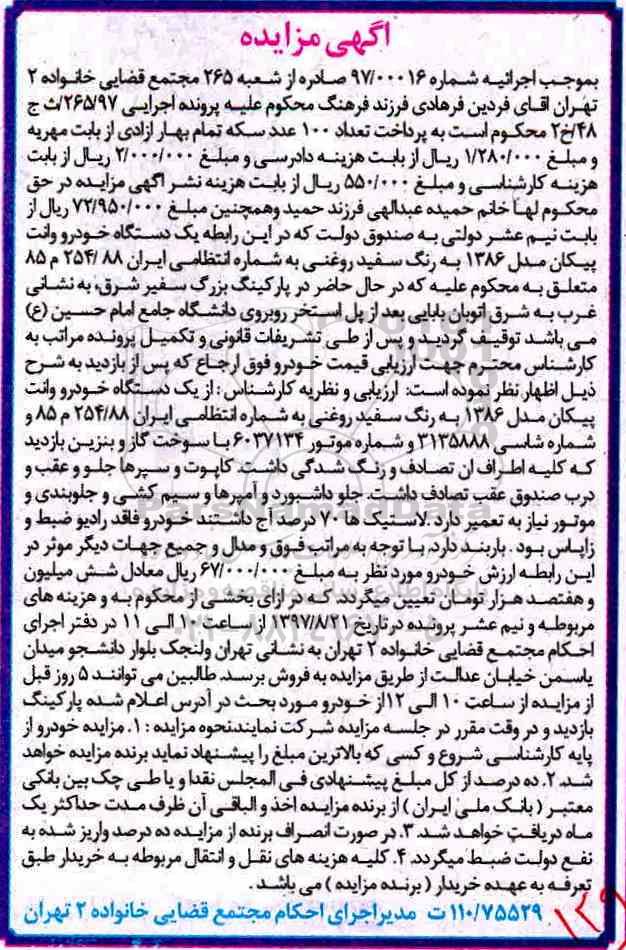 آگهی مزایده
بموجب اجرائیه شماره ۹۷/۰۰۰۱۶ صادره از شعبه ۲۶۵ مجتمع قضایی خانواده ۲
تهران اقای فردین فرهادی فرزند فرهنگ محکوم علیه پرونده اجرایی ۲۶۵/۹۷/ث ج
۴۸/خ۲ محکوم است به پرداخت تعداد ۱۰۰ عدد سکه تمام بهار ازادی از بابت مهریه
و مبلغ ۱/۲۸۰/۰۰۰ ریال از بابت هزینه دادرسی و مبلغ ۲/۰۰۰/۰۰۰ ریال از بابت
هزینه کارشناسی و مبلغ ۵۵۰/۰۰۰ ریال از بابت هزینه نشر اگهی مزایده در حق
محکوم لها خانم حمیده عبدالهی فرزند حمید وهمچنین مبلغ ۷۲/۹۵۰/۰۰۰ ریال از
بابت نیم عشر دولتی به صندوق دولت که در این رابطه یک دستگاه خودرو وانت
پیکان مدل ۱۳۸۶ به رنگ سفید روغنی به شماره انتظامی ایران ۸۸ /۲۵۴ م ۸۵
متعلق به محکوم علیه که در حال حاضر در پارکینگ بزرگ سفیر شرق، به نشانی
غرب به شرق اتوبان بابایی بعد از پل استخر روبروی دانشگاه جامع امام حسین (ع)
می باشد توقیف گردید و پس از طی تشریفات قانونی و تکمیل پرونده مراتب به
کارشناس محترم جهت ارزیابی قیمت خودرو فوق ارجاع که پس از بازدید به شرح
ذیل اظهار نظر نموده است: ارزیابی و نظریه کارشناس : از یک دستگاه خودرو وانت
پیکان مدل ۱۳۸۶ به رنگ سفید روغنی به شماره انتظامی ایران ۲۵۴/۸۸ م ۸۵ و
شماره شاسی ۳۱۳۵۸۸۸ و شماره موتور ۶۰۳۷۱۳۴ با سوخت گاز و بنزین بازدید
که کلیه اطراف ان تصادف و رنگ شدگی داشت. کاپوت و سپرها جلو و عقب و
درب صندوق عقب تصادف داشت. جلو داشبورد و آمپرها و سیم کشی و جلوبندی و
موتور نیاز به تعمیر دارد .لاستیک ها ۷۰ درصد آج داشتند خودرو فاقد رادیو ضبط و
زاپاس بود . باربند دارد. با توجه به مراتب فوق و مدل و جمیع جهات دیگر موثر در
این رابطه ارزش خودرو مورد نظر به مبلغ ۶۷/۰۰۰/۰۰۰ ریال معادل شش میلیون
و هفتصد هزار تومان تعیین میگردد. که در ازای بخشی از محکوم به و هزینه های
مربوطه و نیم عشر پرونده در تاریخ ۱۳۹۷/۸/۲۱ از ساعت ۱۰ الی ۱۱ در دفتر اجرای
احکام مجتمع قضایی خانواده ۲ تهران به نشانی تهران ولنجک بلوار دانشجو میدان
یاسمن خیابان عدالت از طریق مزایده به فروش برسد. طالبین می توانند ۵ روز قبل
از مزایده از ساعت ۱۰ الی ۱۲از خودرو مورد بحث در آدرس اعلام شده پارکینگ
بازدید و در وقت مقرر در جلسه مزایده شرکت نمایند.نحوه مزایده : ۱. مزایده خودرو از
پایه کارشناسی شروع و کسی که بالاترین مبلغ را پیشنهاد نماید برنده مزایده خواهد
شد. ۲. ده درصد از کل مبلغ پیشنهادی فی المجلس نقدا و یا طی چک بین بانکی
معتبر ( بانک ملی ایران ) از برنده مزایده اخذ و الباقی آن ظرف مدت حداکثر یک
ماه دریافت خواهد شد. ۳. در صورت انصراف برنده از مزایده ده درصد واریز شده به
نفع دولت ضبط میگردد. ۴. کلیه هزینه های نقل و انتقال مربوطه به خریدار طبق
تعرفه به عهده خریدار ( برنده مزایده ) می باشد .
۱۱۰/۷۵۵۲۹ ت مدیراجرای احکام مجتمع قضایی خانواده ۲ تهران
ParsNamadData